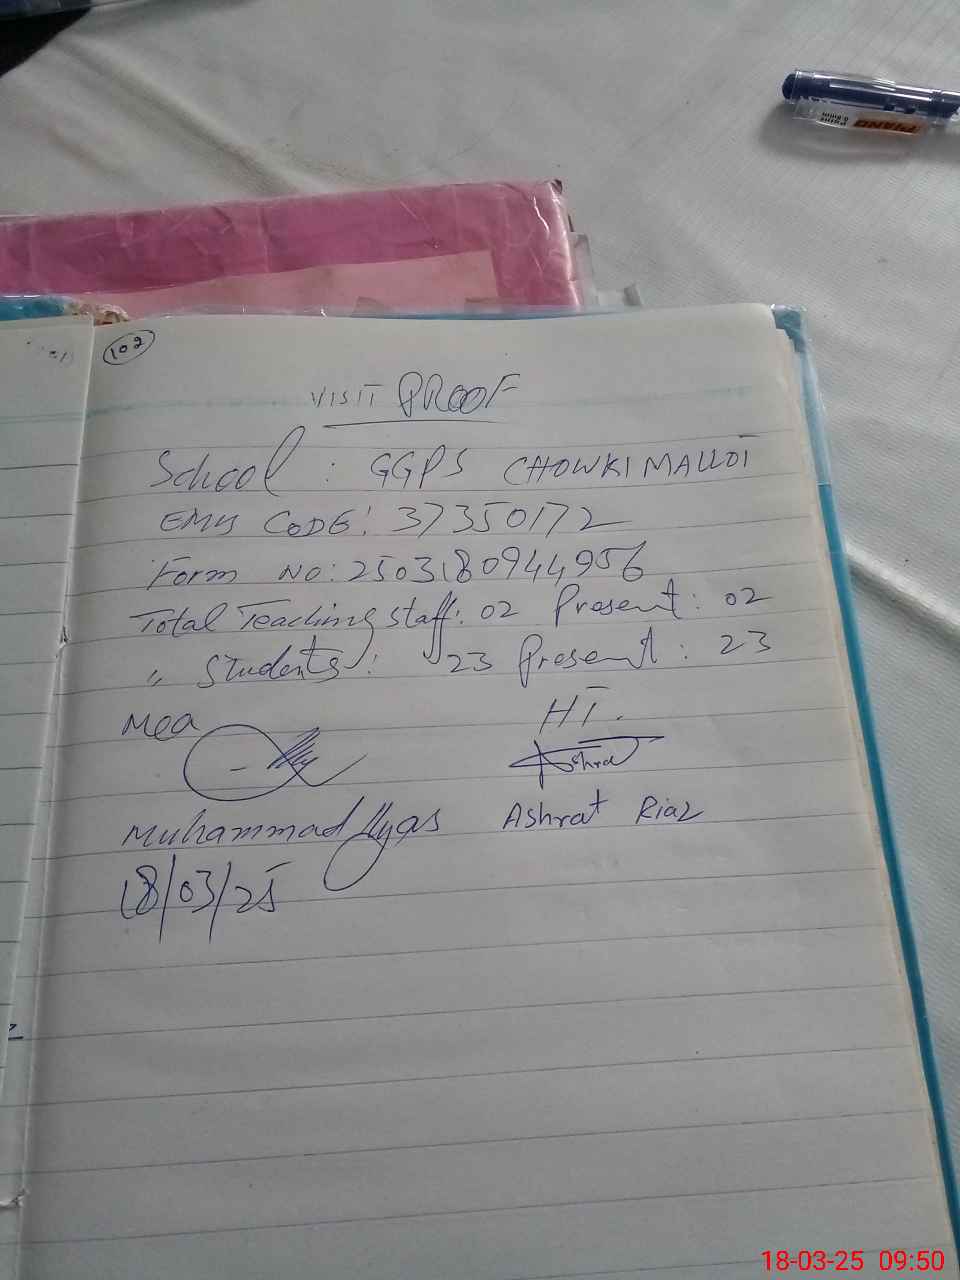 PIANO
Point
0.8mm
102
VISIT PROOF
School : GGPS CHOWKI MALLOI
EMIS CODE: 37350172
Form No: 2503180944956
Total Teaching Staff: 02 Present: 02
" Students: 23 Present: 23
Mea
HT.
Ashraf
Muhammad Ilyas Ashrat Riaz
18/03/25
18-03-25 09:50